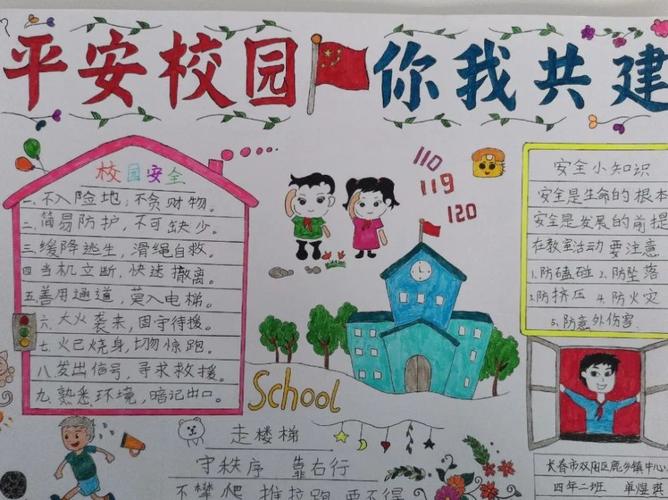 平安校园 你我共建
校园安全
一、不入险地,不贪财物。
二、简易防护,不可缺少。
三、缓降逃生,滑绳自救。
四、当机立断,快速撤离。
五、善用通道,莫入电梯。
六、大火袭来,固守待援。
七、火已烧身,切勿惊跑。
八、发出信号,寻求救援。
九、熟悉环境,暗记出口。
110
119
120
School
安全小知识
安全是生命的根本
安全是发展的前提
在教室活动要注意
1.防磕碰 2.防坠落
3.防挤压 4.防火灾
5.防意外伤害
走楼梯
守秩序 靠右行
不攀爬 推拉跑 要不得
长春市双阳区鹿乡镇中心小
四年二班